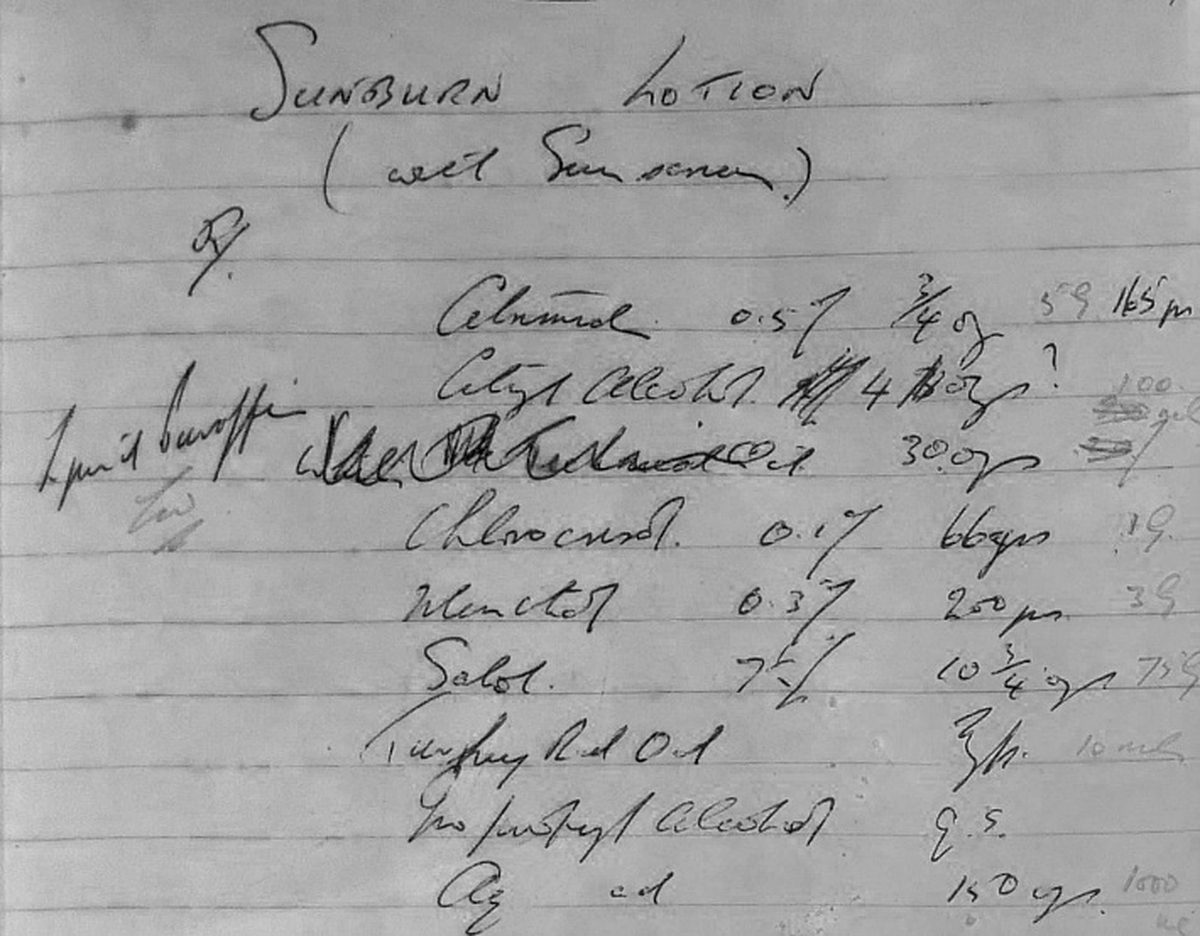 SUNBURN LOTION
(with Sunscreen.)
Rx.
Cetrimide 0.5% 3/4 oz 5g 165 grs
Cetyl Alcohol. 4 ozs? 100
Liquid Paraffin Oil 30 ozs
Chlorocresol. 0.1% 66 grs 1g
Menthol 0.3% 200 grs 3g
Salol. 7½% 10 3/4 ozs 75g
Turkey Red Oil 10 mls
Isopropyl Alcohol q.s.
Aq ad 150 ozs. 1000